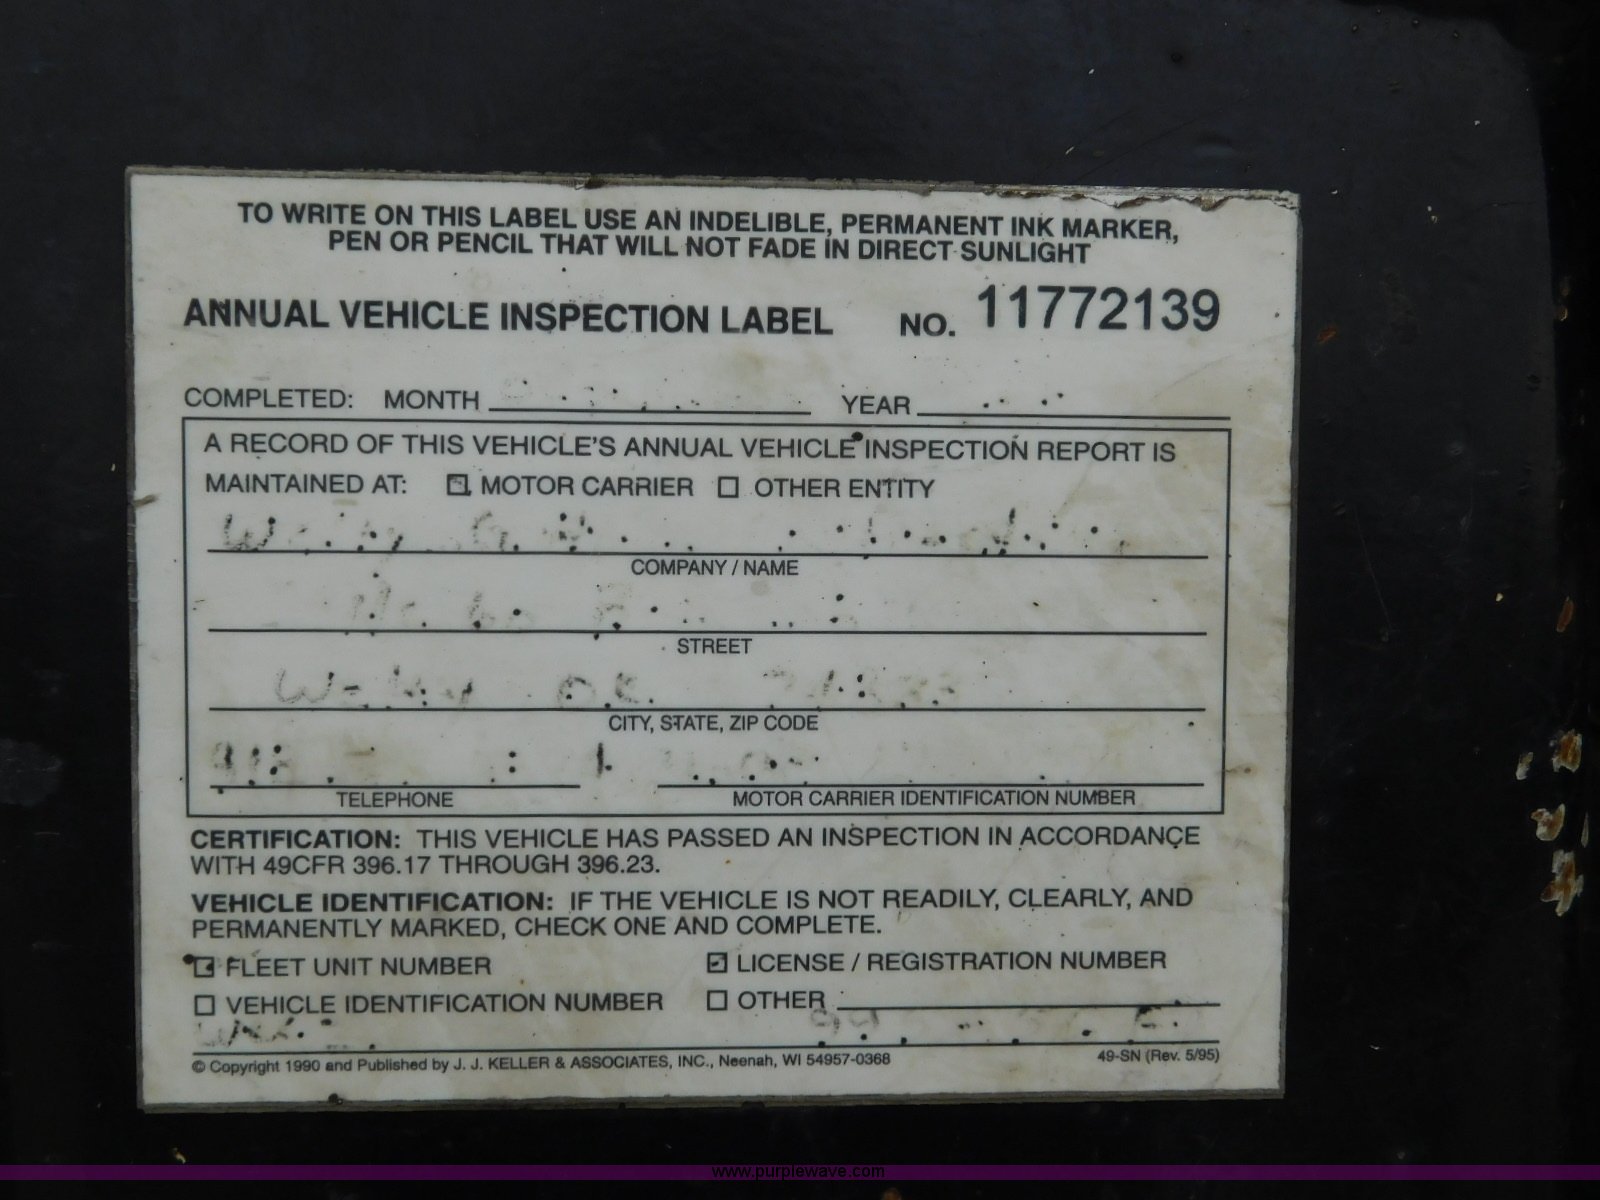 TO WRITE ON THIS LABEL USE AN INDELIBLE, PERMANENT INK MARKER,
PEN OR PENCIL THAT WILL NOT FADE IN DIRECT SUNLIGHT
ANNUAL VEHICLE INSPECTION LABEL NO. 11772139
COMPLETED: MONTH YEAR
A RECORD OF THIS VEHICLE'S ANNUAL VEHICLE INSPECTION REPORT IS
MAINTAINED AT: MOTOR CARRIER OTHER ENTITY
COMPANY / NAME
STREET
CITY, STATE, ZIP CODE
TELEPHONE MOTOR CARRIER IDENTIFICATION NUMBER
CERTIFICATION: THIS VEHICLE HAS PASSED AN INSPECTION IN ACCORDANCE
WITH 49CFR 396.17 THROUGH 396.23.
VEHICLE IDENTIFICATION: IF THE VEHICLE IS NOT READILY, CLEARLY, AND
PERMANENTLY MARKED, CHECK ONE AND COMPLETE.
FLEET UNIT NUMBER LICENSE / REGISTRATION NUMBER
VEHICLE IDENTIFICATION NUMBER OTHER
© Copyright 1990 and Published by J. J. KELLER & ASSOCIATES, INC., Neenah, WI 54957-0368 49-SN (Rev. 5/95)
www.purplewave.com